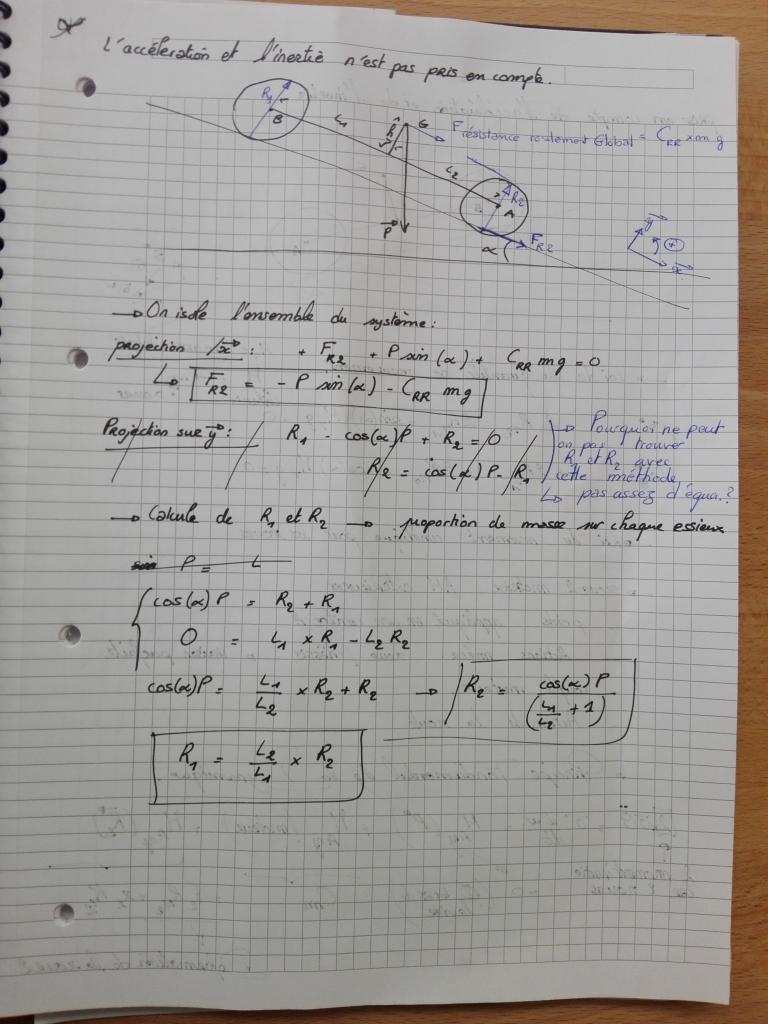 L'accéleration et l'inertie n'est pas pris en compte.
R1
B
L1
h
G
F résistance roulement Global = CRR x m g
L2
R2
A
P
FR2
α
y
+
x
→ On isole l'ensemble du système :
projection /x : + FR2 + P sin(α) + CRR mg = 0
↳ FR2 = - P sin(α) - CRR mg
Projection sur y : R1 - cos(α)P + R2 = 0
R2 = cos(α) P - R1
→ Pourquoi ne peut
on pas trouver
R1 et R2 avec
cette méthode,
↳ pas assez d'équa.?
→ Calcule de R1 et R2 → proportion de masse sur chaque essieux
sin P = L
cos(α) P = R2 + R1
0 = L1 x R1 - L2 R2
cos(α)P = L1/L2 x R2 + R2 → R2 = cos(α) P / (L1/L2 + 1)
R1 = L2/L1 x R2